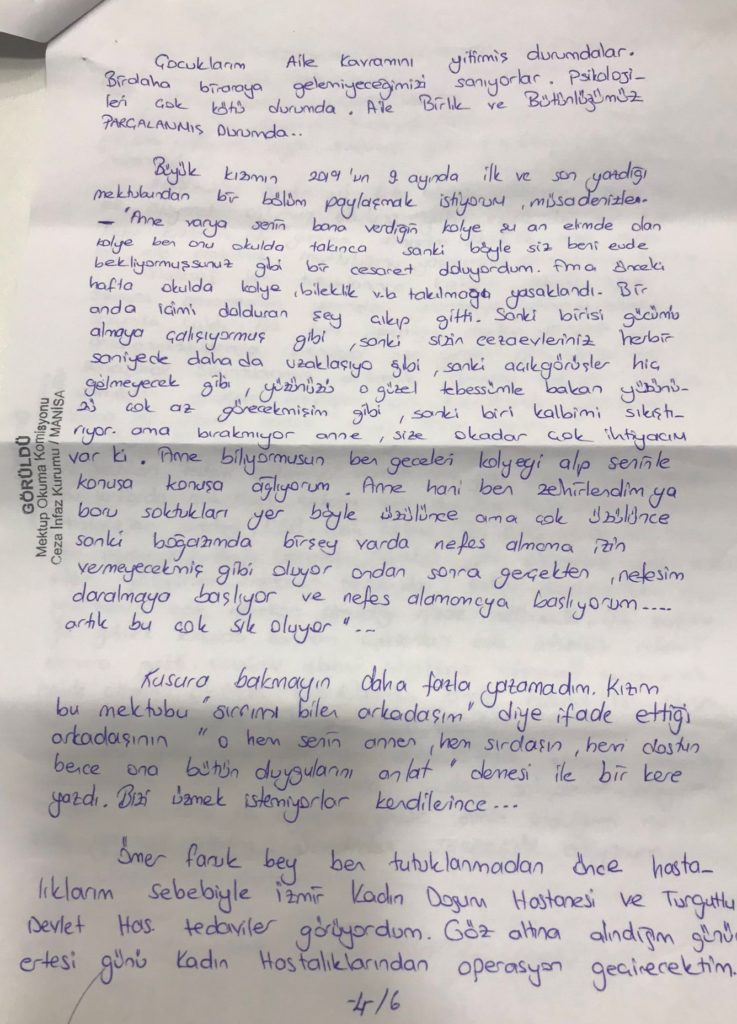 Çocuklarım Aile Kavramını yitirmiş durumdalar.
Birdaha biraraya gelemiyeceğimizi sanıyorlar. Psikoloji-
leri çok kötü durumda. Aile Birlik ve Bütünlüğümüz
PARÇALANMIŞ Durumda..
Büyük kızımın 2019'un 9 ayında ilk ve son yazdığı
mektubundan bir bölüm paylaşmak istiyorum, müsadenizle..
- "Anne varya senin bana verdiğin kolye şu an elimde olan
kolye ben onu okulda takınca sanki böyle siz beni evde
bekliyormuşsunuz gibi bir cesaret doluyordum. Ama önceki
hafta okulda kolye, bileklik v.b takılmağa yasaklandı. Bir
anda içimi dolduran şey çıkıp gitti. Sanki birisi gücümü
almaya çalışıyormuş gibi, sanki sizin cezaevleriniz herbir
saniyede daha da uzaklaşıyo gibi, sanki açıkgörüşler hiç
gelmeyecek gibi, yüzünüzü o güzel tebessümle bakan yüzünü-
zü çok az görecekmişim gibi, sanki biri kalbimi sıkıştı-
rıyor. ama bırakmıyor anne, size okadar çok ihtiyacım
var ki. Anne biliyormusun ben geceleri kolyeyi alıp seninle
konuşa konuşa ağlıyorum. Anne hani ben zehirlendim ya
boru soktukları yer böyle üzülünce ama çok üzülünce
sanki boğazımda birşey varda nefes almama izin
vermeyecekmiş gibi oluyor ondan sonra gerçekten, nefesim
daralmaya başlıyor ve nefes alamamaya başlıyorum....
artık bu çok sık oluyor"...
Kusura bakmayın daha fazla yazamadım. Kızım
bu mektubu "sırrımı bilen arkadaşım" diye ifade ettiği
arkadaşının "o hem senin annen, hem sırdaşın, hem dostun
bence ona bütün duygularını anlat" demesi ile bir kere
yazdı. Bizi üzmek istemiyorlar kendilerince...
Ömer faruk bey ben tutuklanmadan önce hasta-
lıklarım sebebiyle İzmir Kadın Doğum Hastanesi ve Turgutlu
Devlet Has. tedaviler görüyordum. Göz altına alındığım günü
ertesi günü Kadın Hastalıklarından operasyon geçirecektim.
-4/6
GÖRÜLDÜ
Mektup Okuma Komisyonu
Ceza İnfaz Kurumu / MANİSA